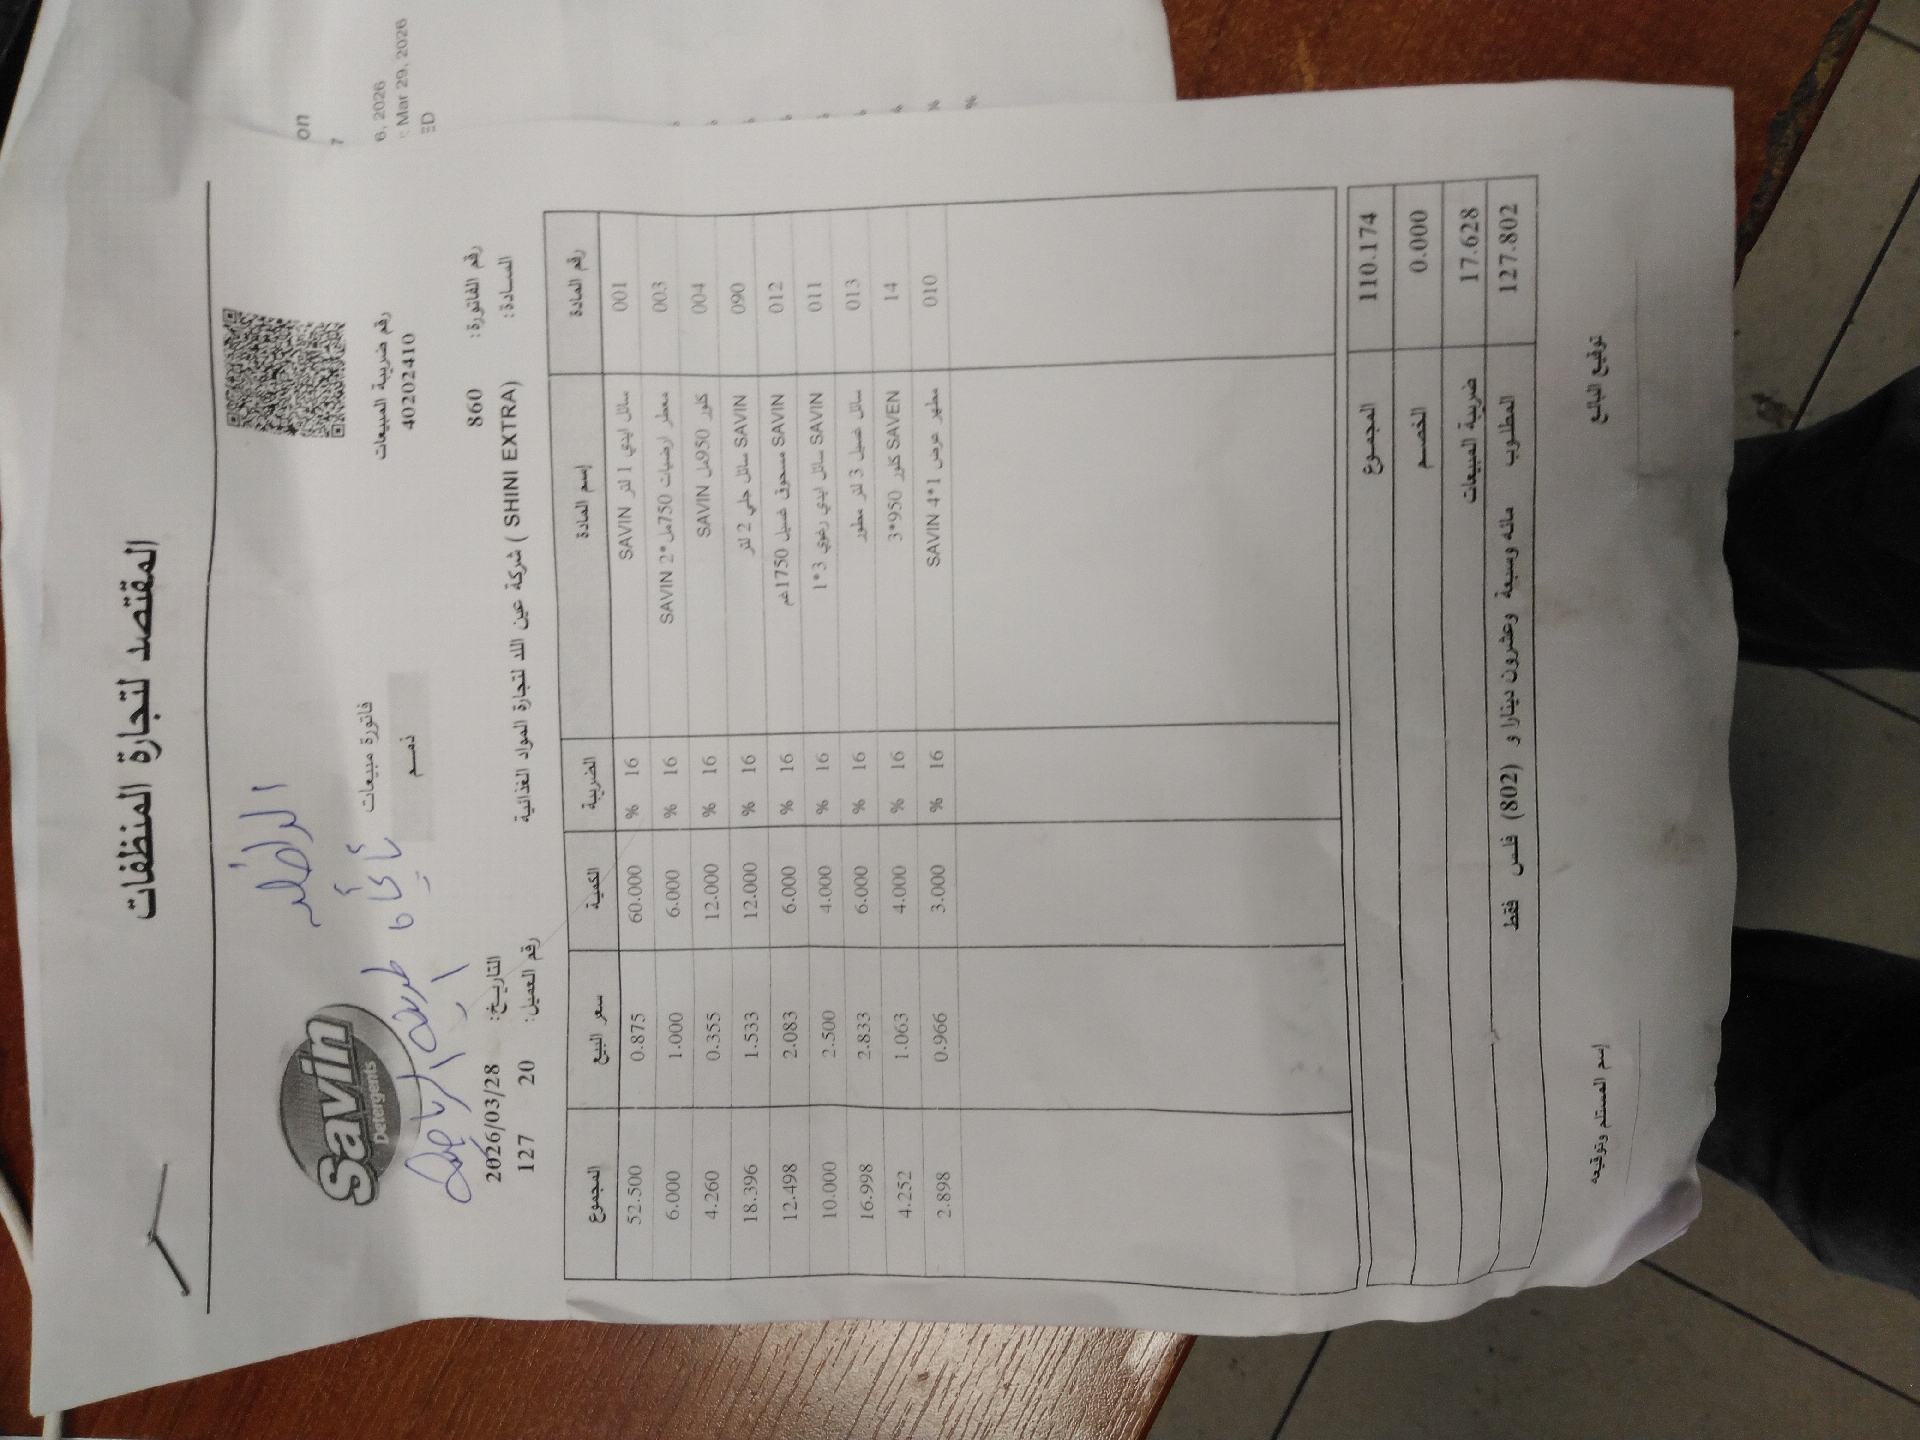 المقتصد لتجارة المنظفات
Savin
Detergents
رقم ضريبة المبيعات
40202410
فاتورة مبيعات
ذمم
رقم الفاتورة: 860
التاريخ: 2026/03/28
السادة: شركة عين اللد لتجارة المواد الغذائية ( SHINI EXTRA)
رقم العميل: 20 127
رقم المادة إسم المادة الضريبة الكمية سعر البيع المجموع
001 سائل ايدي 1 لتر SAVIN 16 % 60.000 0.875 52.500
003 معطر ارضيات 750مل*2 SAVIN 16 % 6.000 1.000 6.000
004 كلور 950مل SAVIN 16 % 12.000 0.355 4.260
090 SAVIN سائل جلي 2 لتر 16 % 12.000 1.533 18.396
012 SAVIN مسحوق غسيل 1750غم 16 % 6.000 2.083 12.498
011 SAVIN سائل ايدي رغوي 3*1 16 % 4.000 2.500 10.000
013 سائل غسيل 3 لتر مطور 16 % 6.000 2.833 16.998
14 SAVEN كلور 950*3 16 % 4.000 1.063 4.252
010 مطهر عرض 1*4 SAVIN 16 % 3.000 0.966 2.898
110.174 المجموع
0.000 الخصم
17.628 ضريبة المبيعات
127.802 المطلوب مائه وسبعة وعشرون دينارا و (802) فلس فقط
توقيع البائع
إسم المستلم وتوقيعه
on
7
6, 2026
Mar 29, 2026
ED
%
%